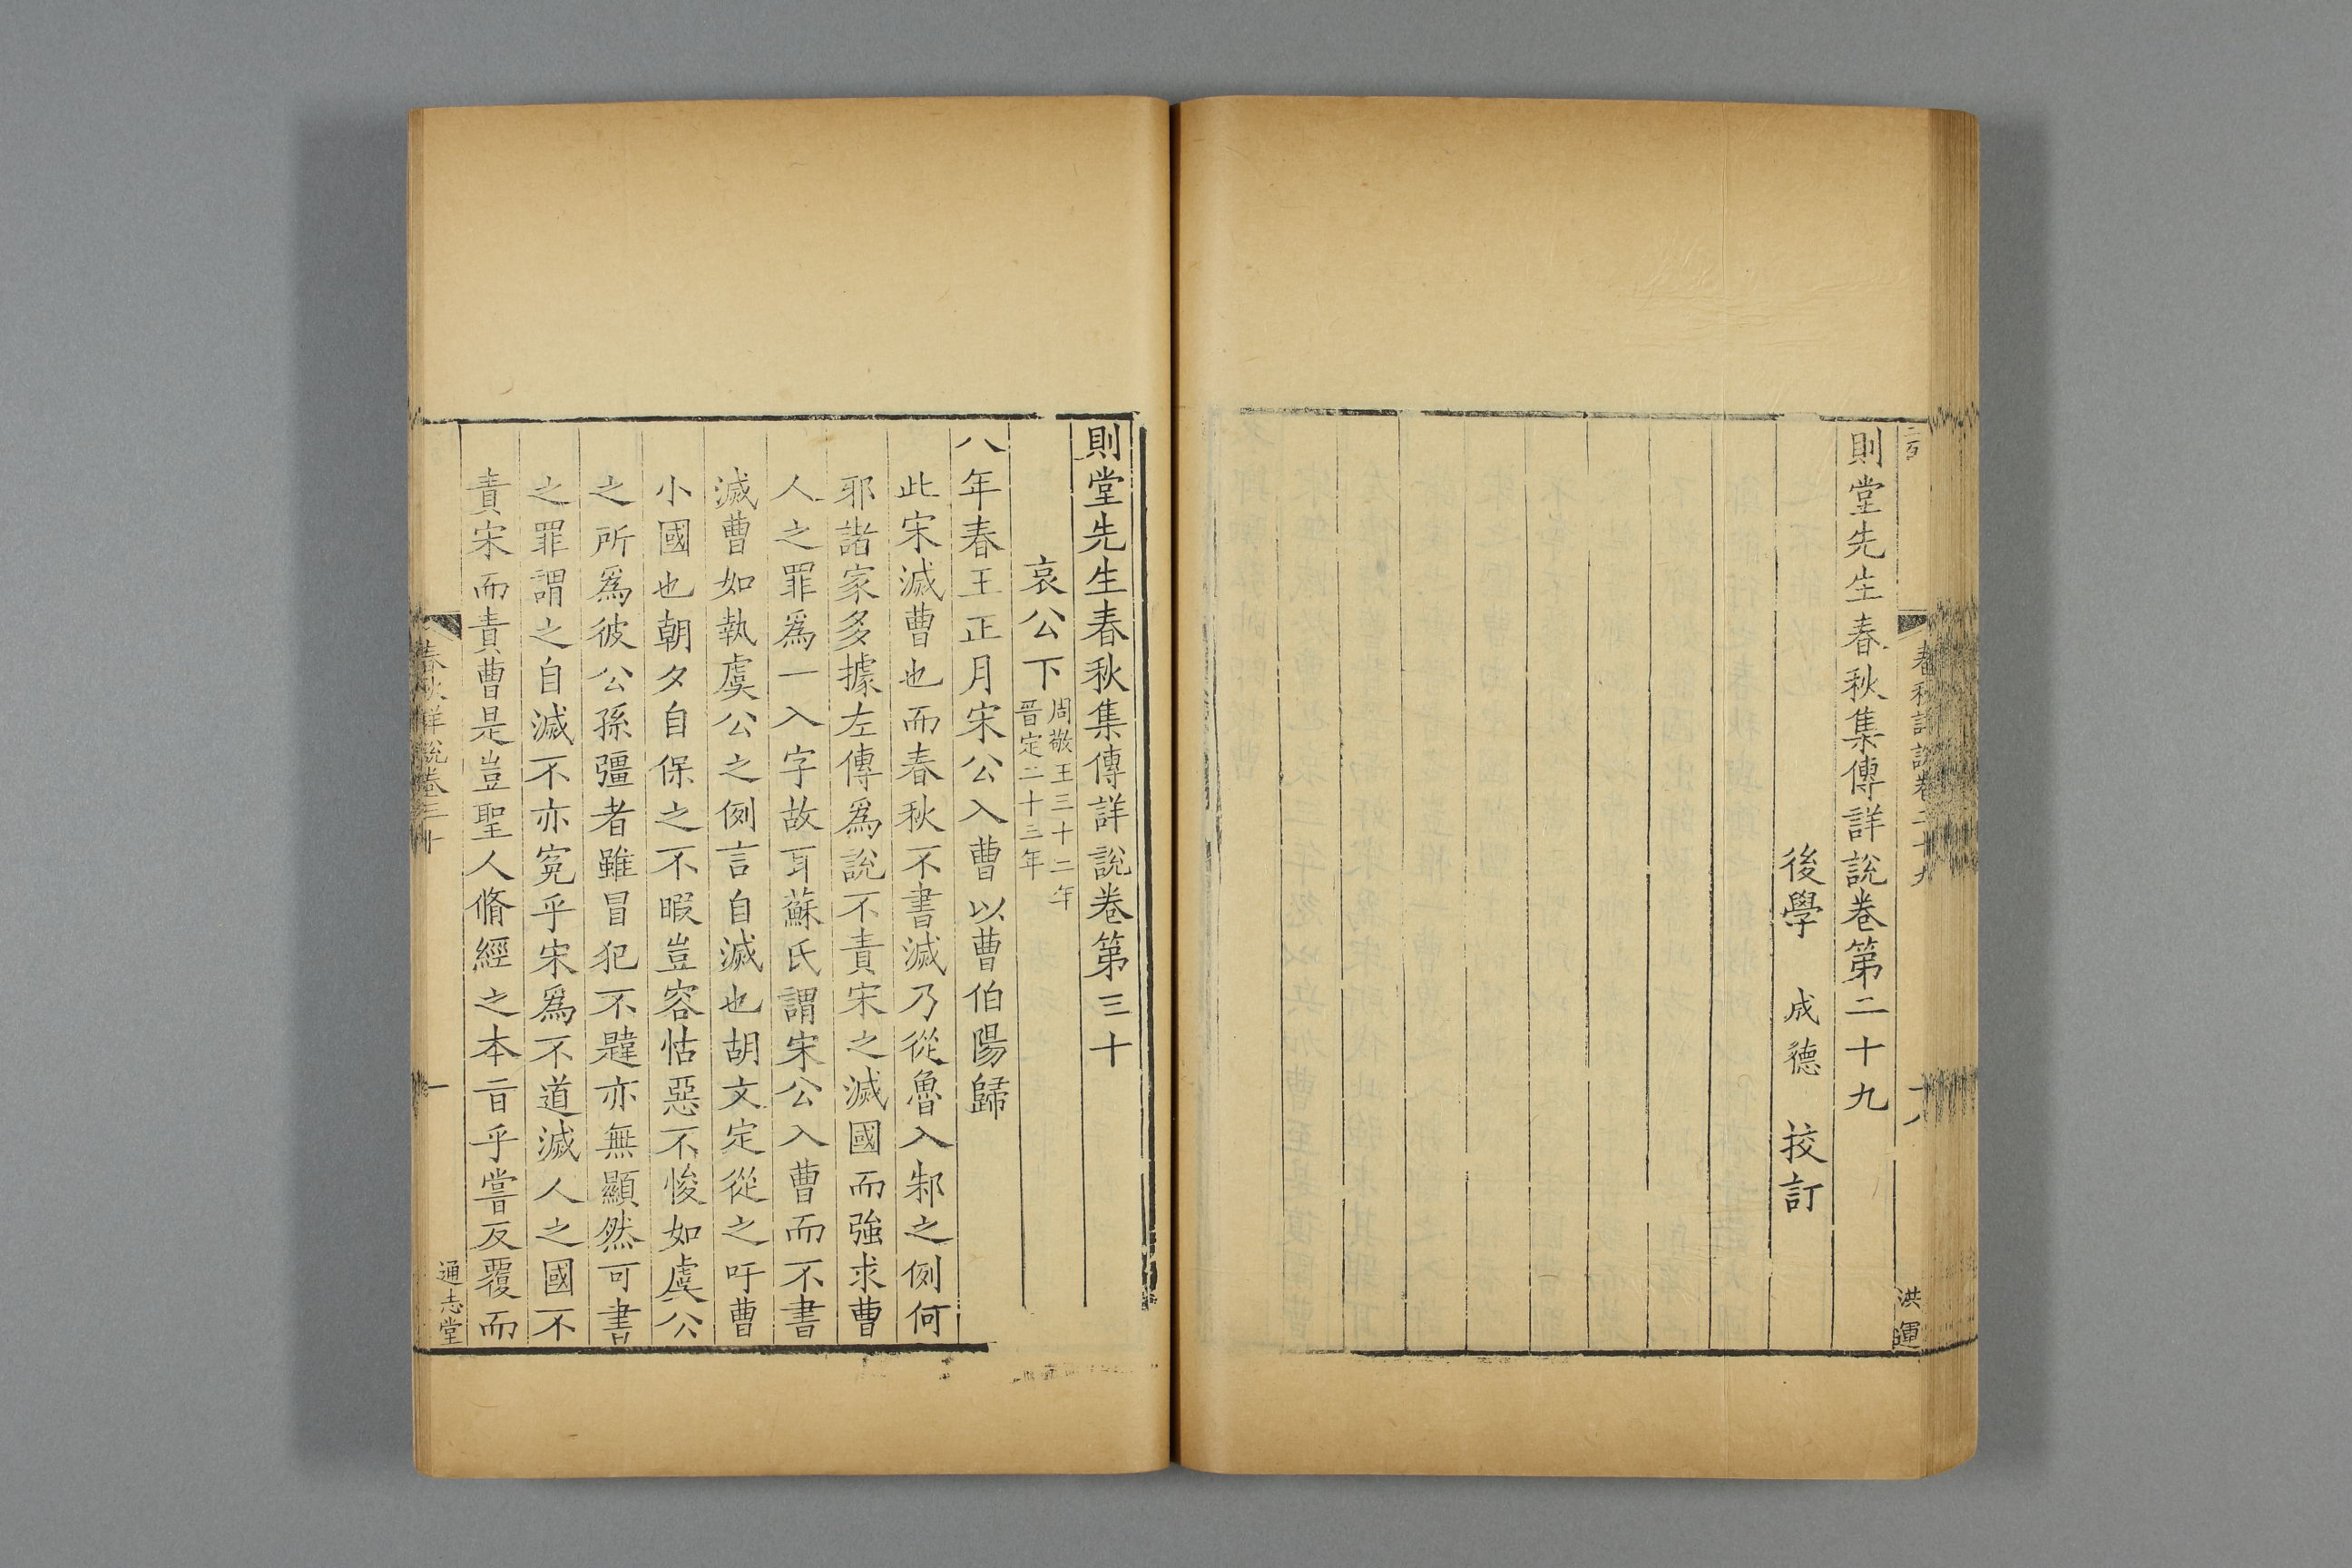 春秋詳說卷二十九
洪運
則堂先生春秋集傳詳說卷第二十九
後學 成德 挍訂
則堂先生春秋集傳詳說卷第三十
哀公下
周敬王三十二年
晋定二十三年
八年春王正月宋公入曹以曹伯陽歸
此宋滅曹也而春秋不書滅乃從魯入邾之例何
邪諸家多據左傳爲說不責宋之滅國而強求曹
人之罪爲一入字故耳蘇氏謂宋公入曹而不書
滅曹如執虞公之例言自滅也胡文定從之吁曹
小國也朝夕自保之不暇豈容怙惡不悛如虞公
之所爲彼公孫彊者雖冒犯不韙亦無顯然可書
之罪謂之自滅不亦寃乎宋爲不道滅人之國不
責宋而責曹是豈聖人脩經之本㫖乎嘗反覆而
春秋詳說卷三十
一
通志堂